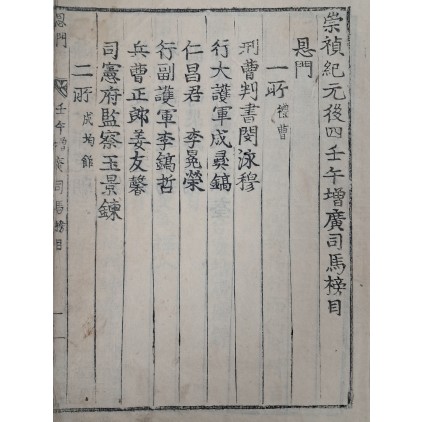 崇禎紀元後四壬午增廣司馬榜目
恩門
一所 禮曹
刑曹判書閔泳穆
行大護軍成彛鎬
仁昌君 李晃榮
行副護軍李鎬哲
兵曹正郎姜友馨
司憲府監察玉景鍊
二所 成均館
恩門 壬午增廣司馬榜目 一